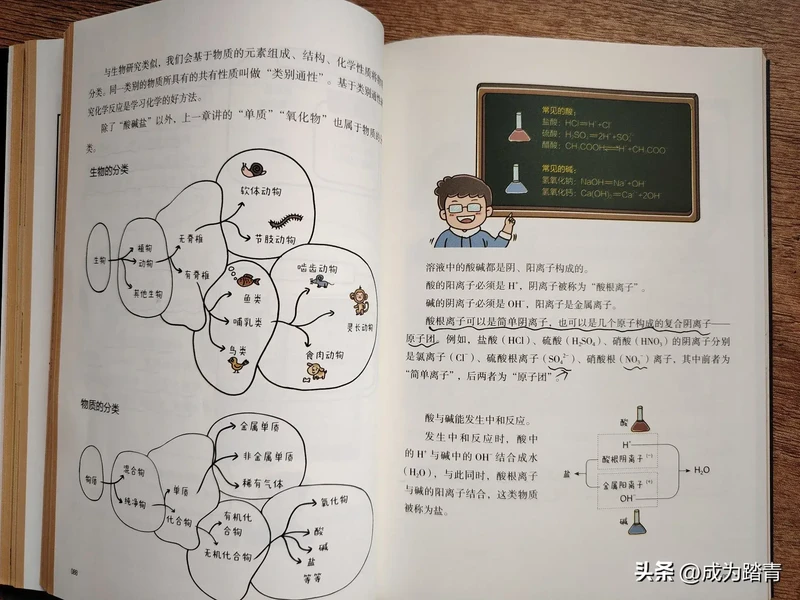 与生物研究类似，我们会基于物质的元素组成、结构、化学性质将物
分类。同一类别的物质所具有的共有性质叫做“类别通性”。基于类别通性
究化学反应是学习化学的好方法。
除了“酸碱盐”以外，上一章讲的“单质”“氧化物”也属于物质的
类。
生物的分类
生物
植物
动物
其他生物
无脊椎
有脊椎
软体动物
节肢动物
鱼类
哺乳类
鸟类
啮齿动物
灵长动物
食肉动物
物质的分类
物质
混合物
纯净物
单质
化合物
金属单质
非金属单质
稀有气体
有机化
合物
无机化合物
氧化物
酸
碱
盐
等等
常见的酸：
盐酸：HCl═H⁺+Cl⁻
硫酸：H₂SO₄═2H⁺+SO₄²⁻
醋酸：CH₃COOH⇌H⁺+CH₃COO⁻
常见的碱：
氢氧化钠：NaOH═Na⁺+OH⁻
氢氧化钙：Ca(OH)₂═Ca²⁺+2OH⁻
溶液中的酸碱都是阴、阳离子构成的。
酸的阳离子必须是 H⁺，阴离子被称为“酸根离子”。
碱的阴离子必须是 OH⁻，阳离子是金属离子。
酸根离子可以是简单阴离子，也可以是几个原子构成的复合阴离子——
原子团。例如，盐酸（HCl）、硫酸（H₂SO₄）、硝酸（HNO₃）的阴离子分别
是氯离子（Cl⁻）、硫酸根离子（SO₄²⁻）、硝酸根（NO₃⁻）离子，其中前者为
“简单离子”，后两者为“原子团”。
酸与碱能发生中和反应。
发生中和反应时，酸中
的 H⁺与碱中的 OH⁻结合成水
（H₂O），与此同时，酸根离子
与碱的阳离子结合，这类物质
被称为盐。
酸
H⁺
酸根阴离子 (−)
盐
H₂O
金属阳离子 (+)
OH⁻
碱
头条 @成为踏青